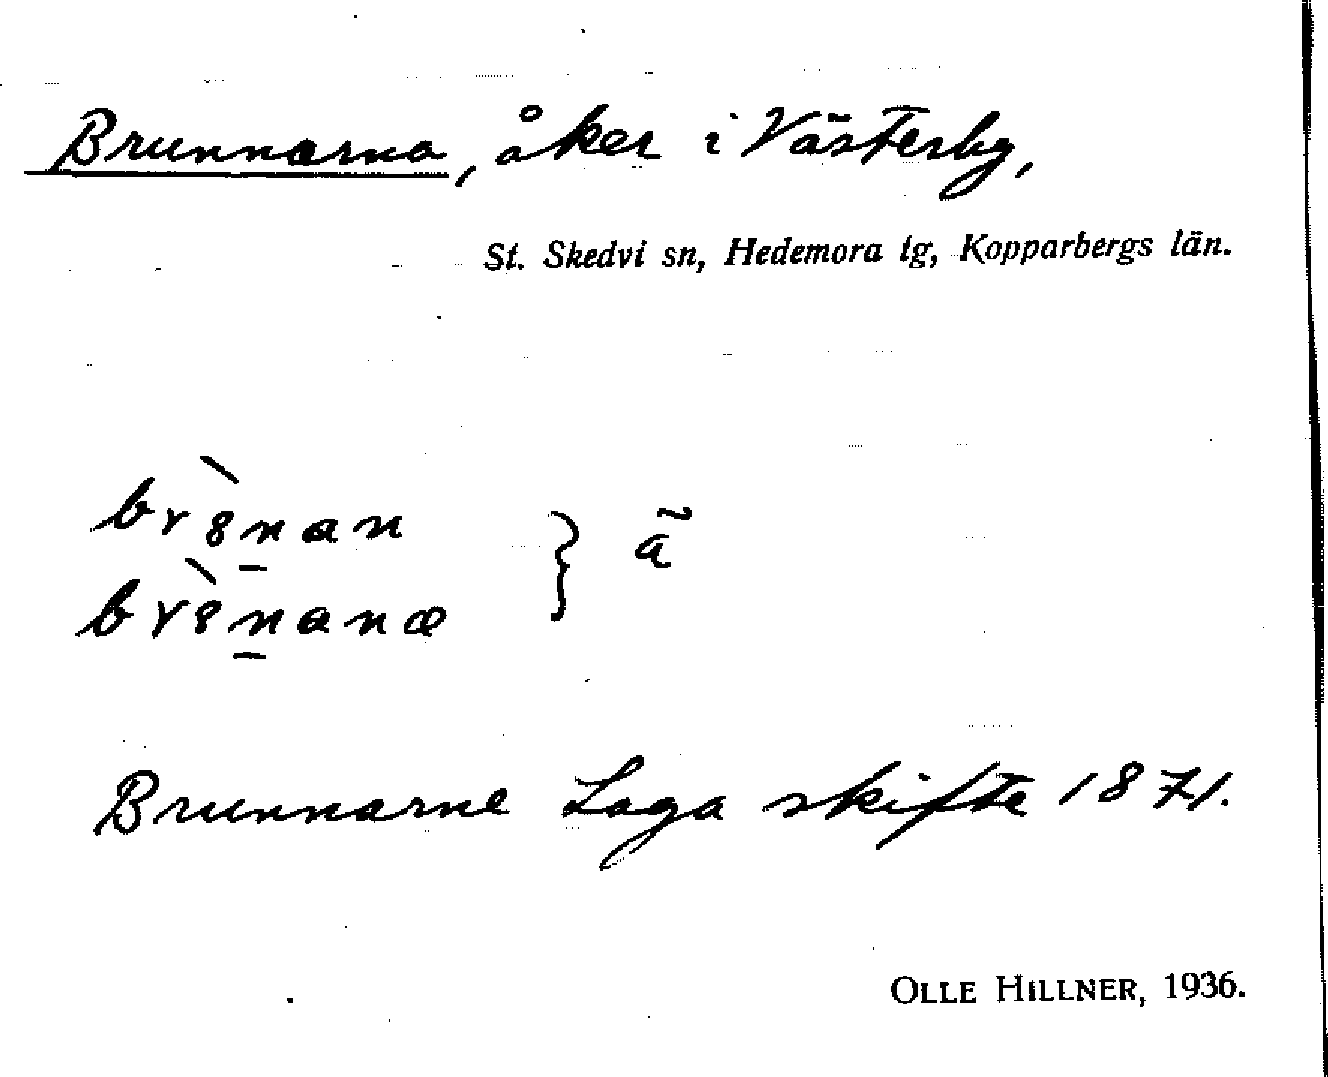 Brunnarna, åker i Västerby,
St. Skedvi sn, Hedemora tg, Kopparbergs län.
br8̀n̲an } ã
br8̀n̲anæ
Brunnarne Laga skifte 1871.
OLLE HILLNER, 1936.